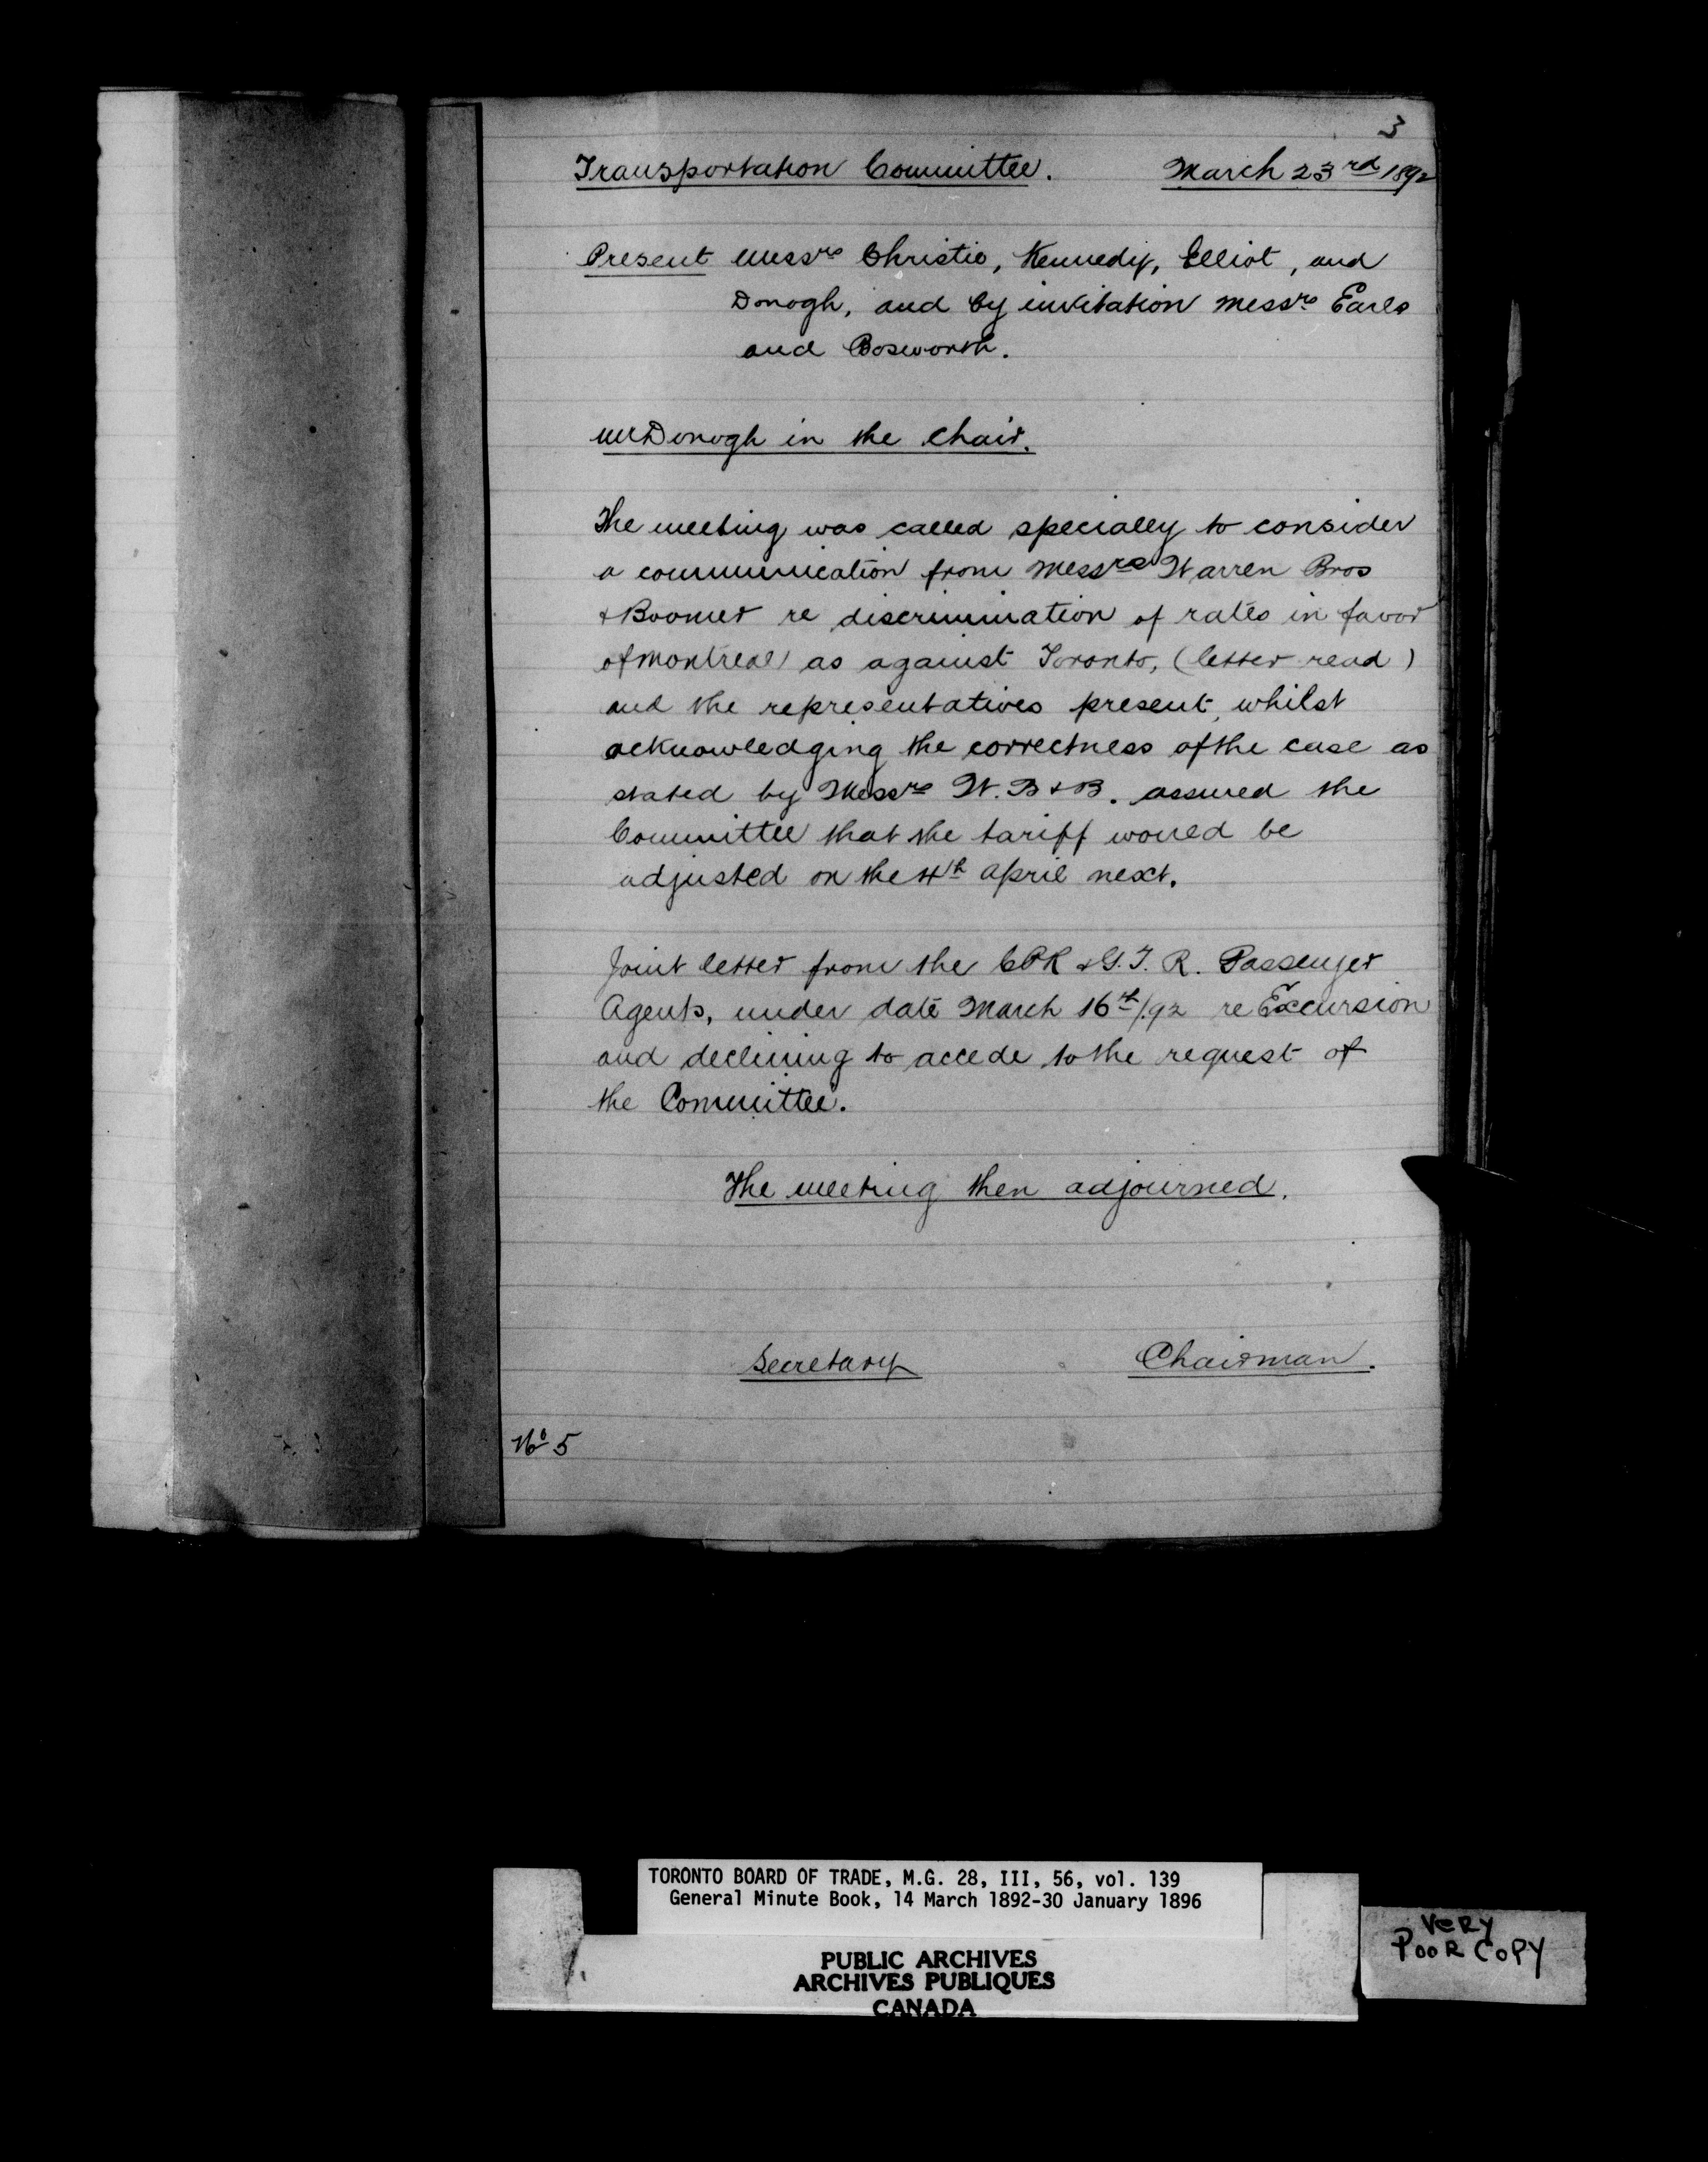 3
Transportation Committee. March 23rd 1892
Present Messrs Christie, Kennedy, Elliot, and
Donogh, and by invitation Messrs Earls
and Bosworth.
Mr Donogh in the Chair.
The meeting was called specially to consider
a communication from Messrs Warren Bros
& Boomer re discrimination of rates in favor
of Montreal as against Toronto, (letter read)
and the representatives present, whilst
acknowledging the correctness of the case as
stated by Messrs W. B & B. assured the
Committee that the tariff would be
adjusted on the 4th April next.
Joint letter from the CPR & G. T. R. Passenger
Agents, under date March 16th/92 re Excursion
and declining to accede to the request of
the Committee.
The meeting then adjourned.
Secretary Chairman.
No 5
TORONTO BOARD OF TRADE, M.G. 28, III, 56, vol. 139
General Minute Book, 14 March 1892-30 January 1896
PUBLIC ARCHIVES
ARCHIVES PUBLIQUES
CANADA
VERY
POOR COPY